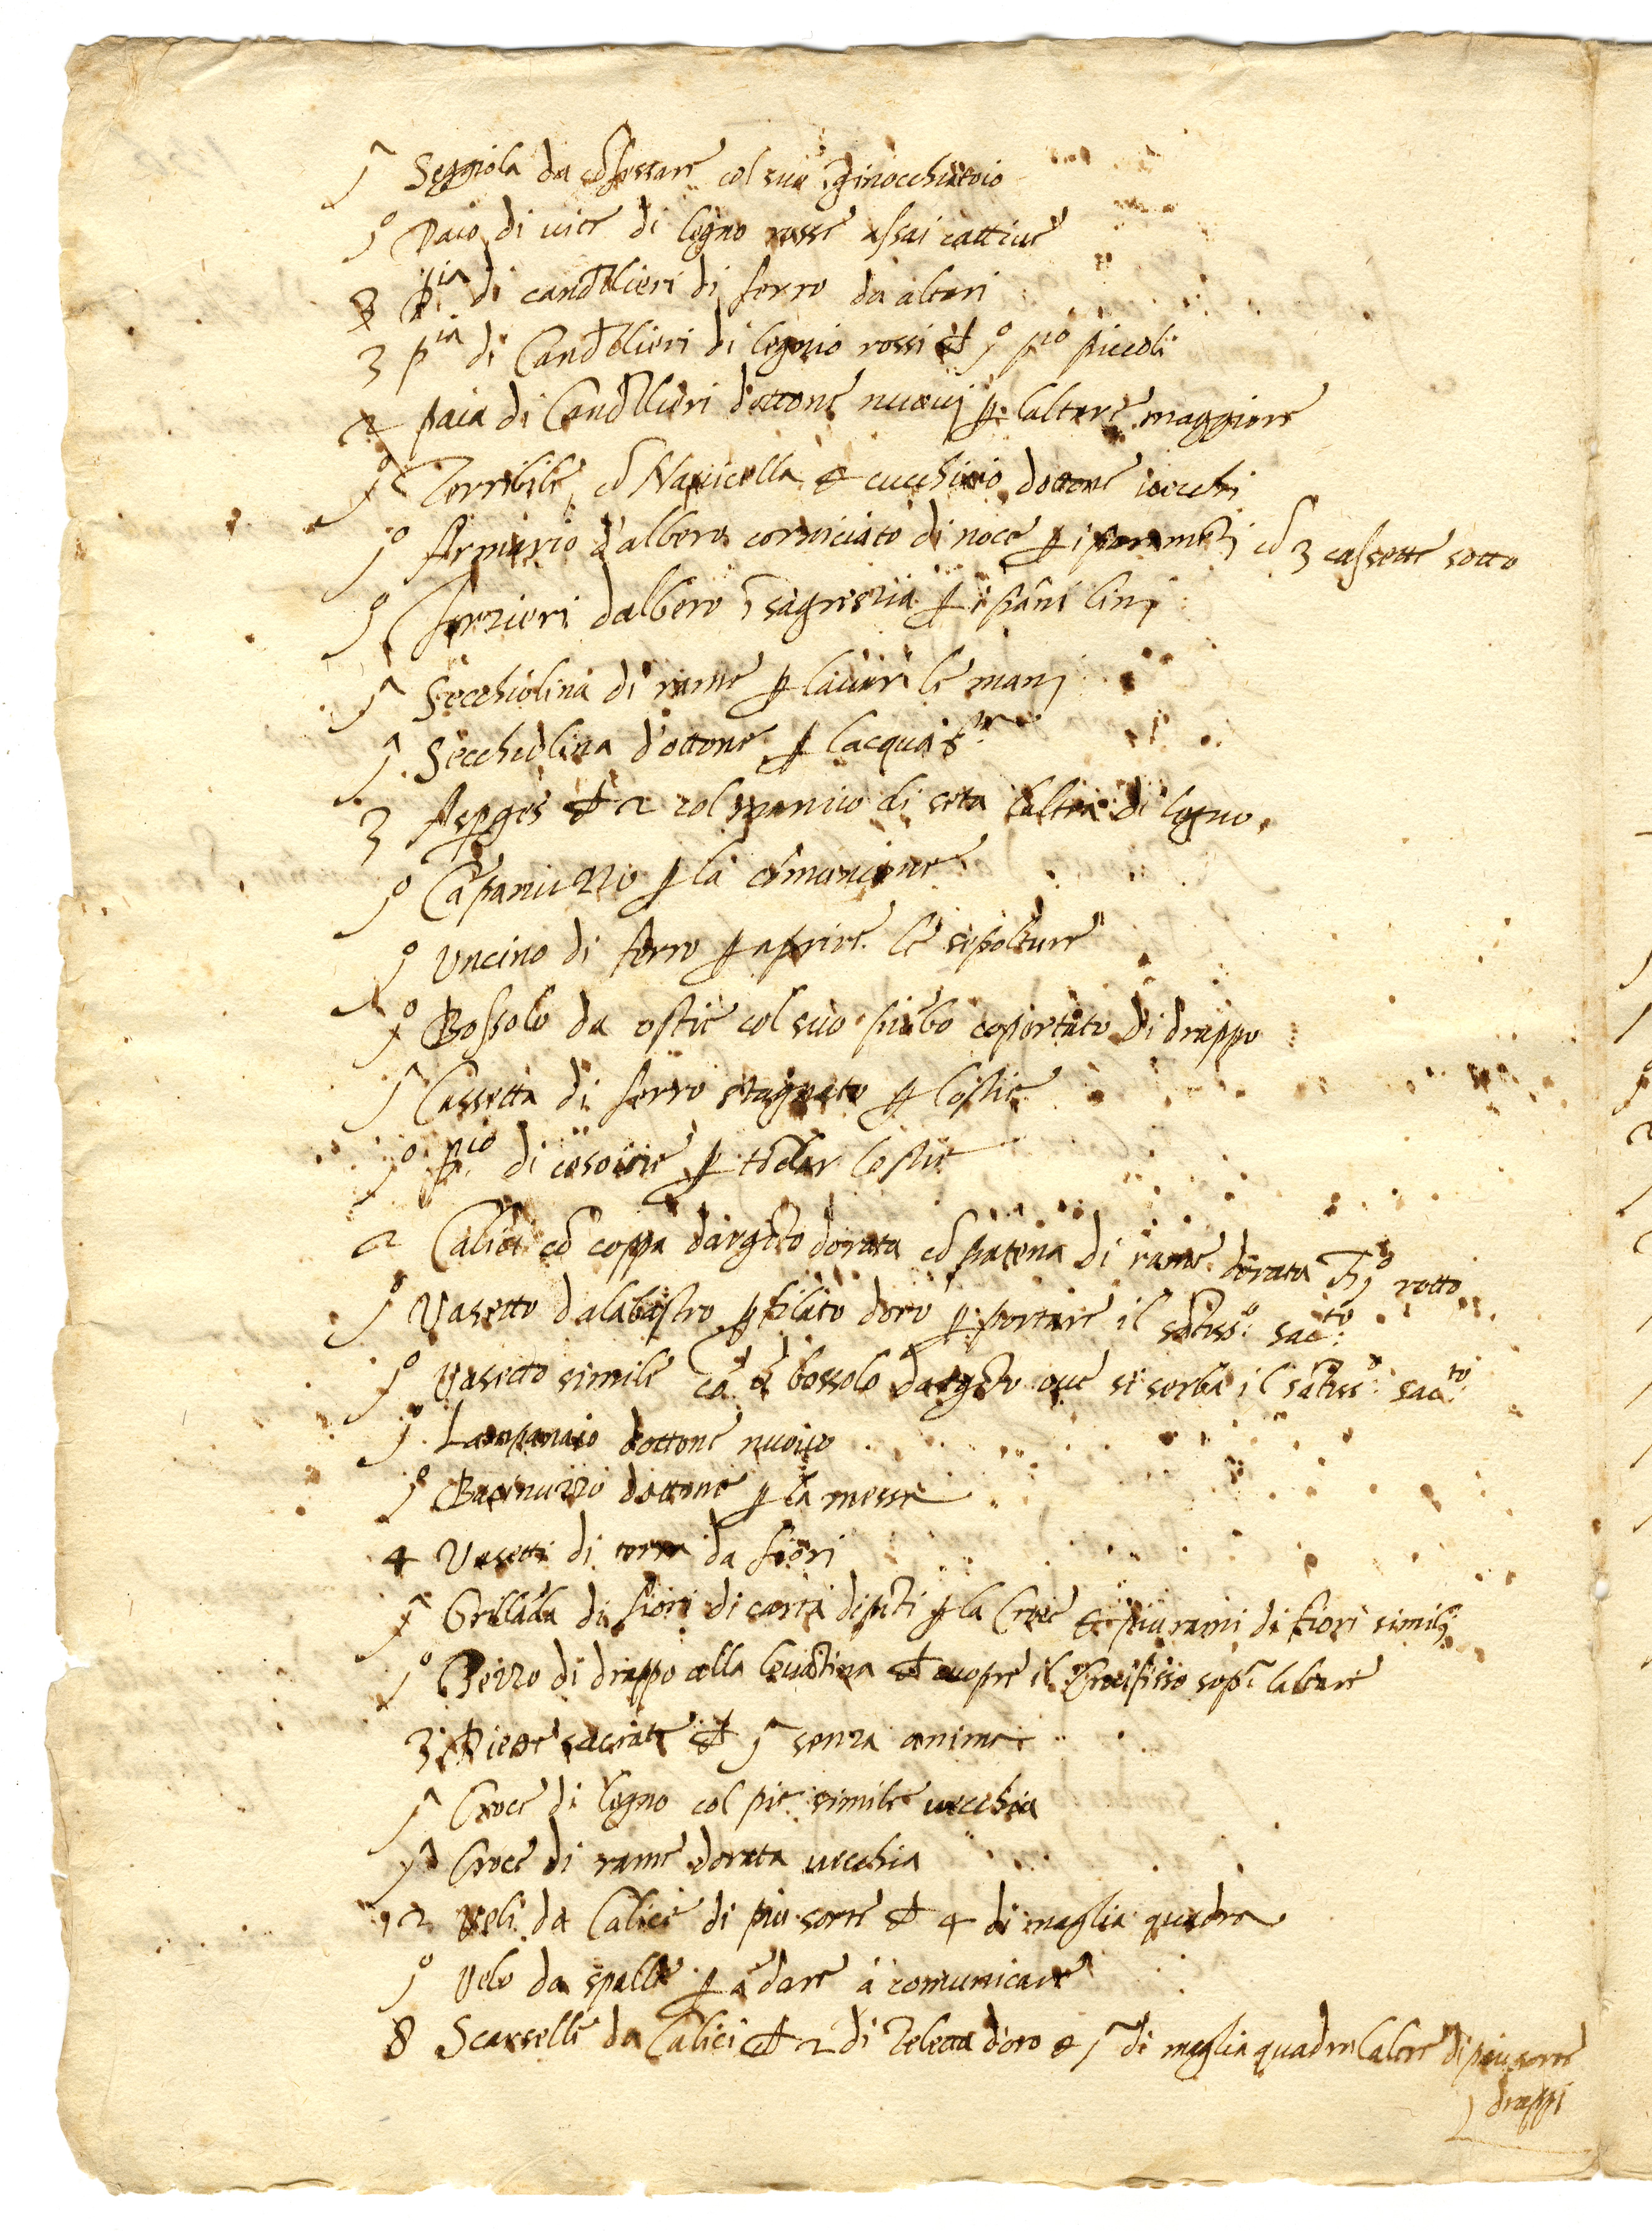 1ª Seggiola da cōfessare col suo īginocchiatoio
1º Paio di vite di legno rosse assai cattive
8 pia di candellieri di ferro da altari
3 pia di Candellieri di legnio rossi ch 1º pio piccoli
2 paia di Candellieri dottone nuovi p laltare maggiore
1º Terribile cō Navicella & cucchiaio dottone vecchi
1º Armario dalbero corniciato di noce p i paramēti cō 3 cassette sotto
1º Forzieri dalbero ī sagrestia p i pāni lini
1ª Secchiolina di rame p lavar le mani
1ª Secchiolina dottone p lacqua sta
3 Asperges ch 2 col manico di seta laltra di legno
1º Cāpanuzzo p la comunione
1º Uncino di ferro p aprire le sepolture
1º Bossolo da ostie col suo piōbo copertato di drappo
1ª Cassetta di ferro stagnato p lostie
1º pio di cesoie p tōdar lostie
2 Calici cō coppa dargēto dorata cō patena di rame dorata 1º rotto
1º Vasetto dalabastro p filato doro p portare il sātiss.º sacto.
1º Vasetto simile cō bossolo dargēto ove si serba il sātiss.º sacto.
1º Lampanaio dottone nuovo
1º Bacinuzzo dottone p la messe
4 Vasetti di terra da fiori
1ª Grillāda di fiori di carta dipīti p la Croce & piu rami di fiori simili
1º Pezzo di drappo alla levātina ch cuopre il Crocifisso sopra laltare
3 Pietre sacrate ch 1ª senza anima
1ª Croce di legno col pie simile vecchia
1ª Croce di rame dorata vecchia
12 Veli da Calici di piu sorte ch 4 di maglia quadra
1º Velo da spalle p ādare a comunicare
8 Scarselle da Calici ch 2 di Teletta doro & 1ª di maglia quadra laltre di piu sorte
drappi